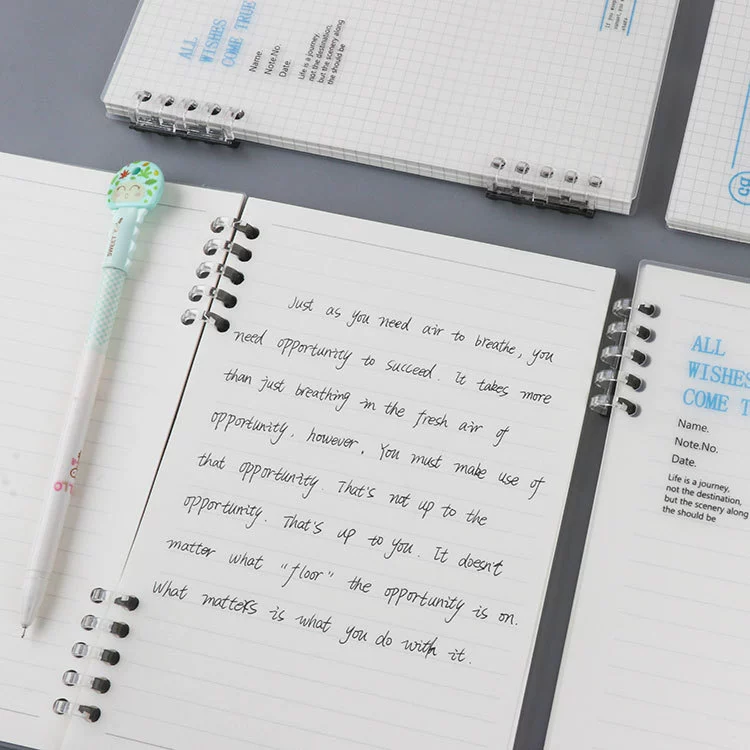 ALL
WISHES
COME TRUE
Name.
Note.No.
Date.
Life is a journey,
not the destination,
but the scenery along
the should be
SWEET
Just as you need air to breathe, you
need opportunity to succeed. It takes more
than just breathing in the fresh air of
opportunity. however, You must make use of
that opportunity. That's not up to the
opportunity. That's up to you. It doesn't
matter what "floor" the opportunity is on.
What matters is what you do with it.
ALL
WISHES
COME T
Name.
Note.No.
Date.
Life is a journey,
not the destination,
but the scenery along
the should be